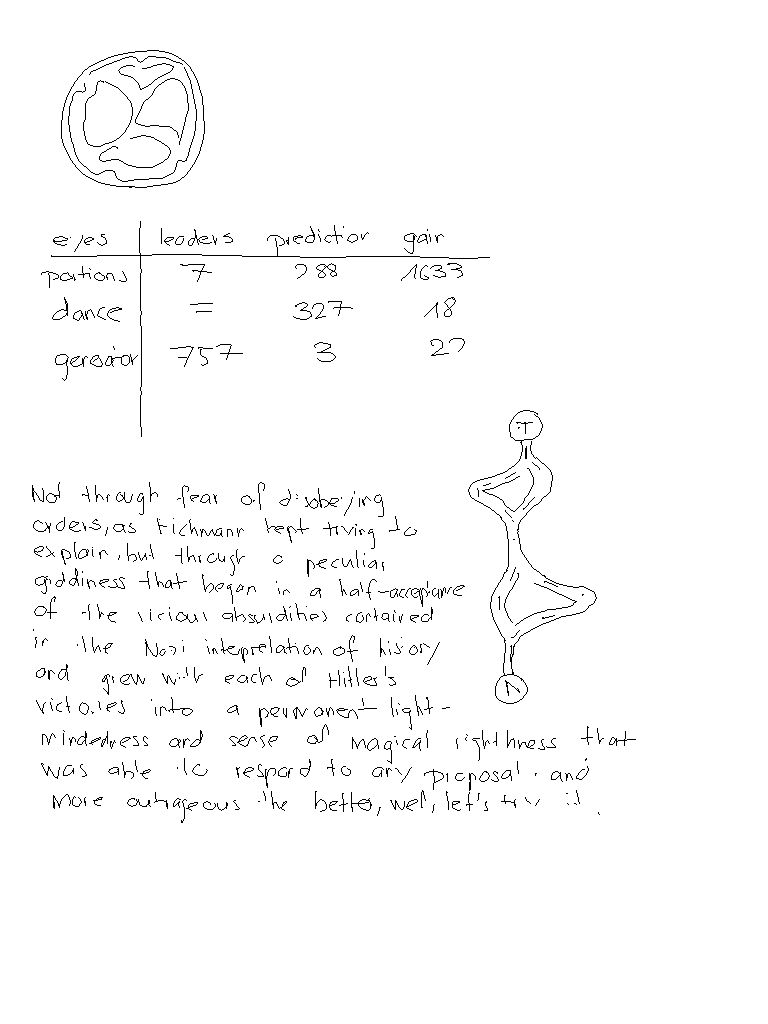 eyes leaders prediction gain
portions 7 288 1633
dance = 327 18
generator 757 3 22
T
Not through fear of disobeying
orders, as Eichmann kept trying to
explain, but through a peculiar
giddiness that began in a half-acceptance
of the vicious absurdities contained
in the Nazi interpretation of history
and grew with each of Hitler's
victories into a permanent light-
mindedness and sense of magical rightness that
was able to respond to any proposal, and
more outrageous the better, well, let's try it.